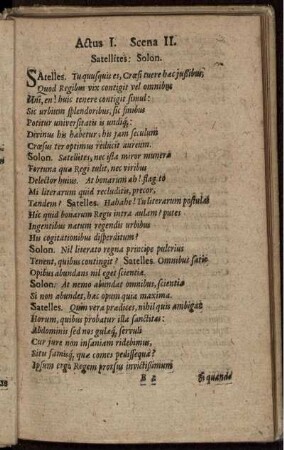 Actus I. Scena II.
Satellites: Solon.
SAtelles. Tu quisquis es, Cræsi tuere hac jussibus,
Quod Regibus vix contigit vel omnibus
Uni, en! huic tenere contigit simul:
Sic urbium splendoribus, sic finibus
Potitur universitatis is undiq;:
Divinus hic habetur: his jam seculum
Cræsus ter optimus reducit aureum.
Solon. Satellites, nec ista miror munera
Fortuna quæ Regi tulit, nec viribus
Delector hujus. At bonarum ab! flag.to
Mi literarum quid recluditis, precor,
Tandem? Satelles. Hahahe! Tu literarum postulas
Hic quid bonarum Regis intra aulam? putes
Ingentibus natum regendis urbibus
His cogitationibus disperditum?
Solon. Nil literato regna principe pulcrius
Tenent, quibus contingit? Satelles. Omnibus satis
Opibus abundans nil eget scientiâ.
Solon. At nemo abundat omnibus, scientiâ
Si non abundet, hac opum quia maxima.
Satelles. Quin vera prædices, nihil quis ambigat
Horum, quibus probatur illa sanctitas:
Abdominis sed nos gulæq; servuli
Cur jure non insaniam ridebimus,
Situ famisq; quæ comes pedissequa?
Ipsum ergo Regem prorsus invictissimum
B 2 Si quando